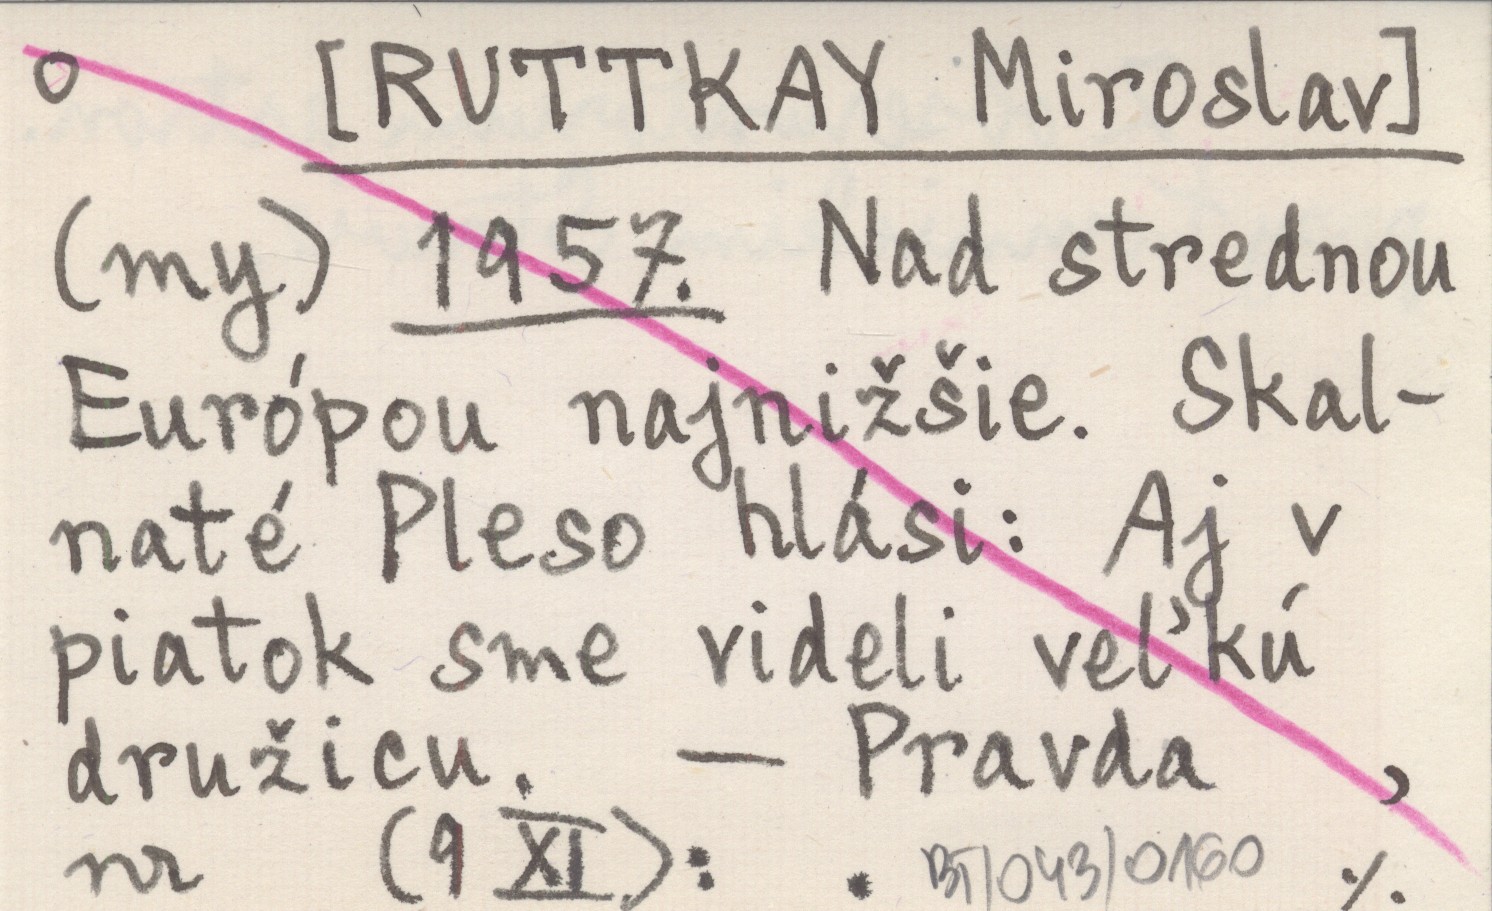 o [RUTTKAY Miroslav]
(my) 1957. Nad strednou
Európou najnižšie. Skal-
naté Pleso hlási: Aj v
piatok sme videli veľkú
družicu. — Pravda ,
nr (9 XI): . BT/043/0160 ./.